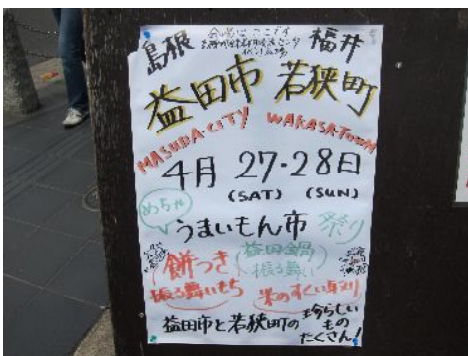 島根 福井
益田市 若狭町
MASUDA-CITY WAKASA-TOWN
4月27・28日
(SAT) (SUN)
めちゃ
うまいもん市 祭り
餅つき
振る舞いもち
益田鍋
振る舞い
米のすくい取り
益田市と若狭町の 珍らしい
もの
たくさん!